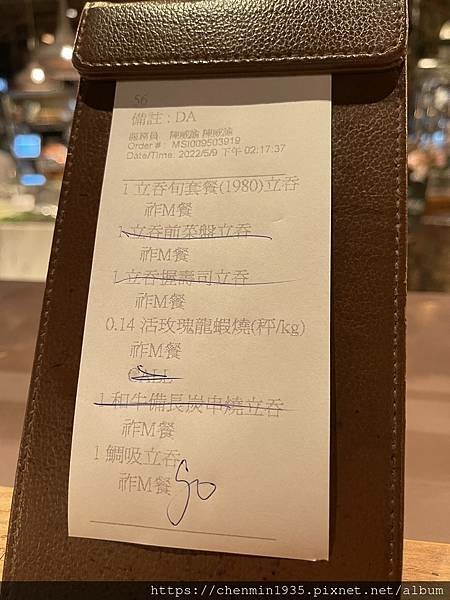 56
備註 : DA
服務員 陳威諭 陳威諭
Order # : MSI009503919
Date/Time: 2022/5/9 下午 02:17:37
1 立吞旬套餐(1980)立吞
祚M餐
1 立吞前菜盤立吞
祚M餐
1 立吞握壽司立吞
祚M餐
0.14 活玫瑰龍蝦燒(秤/kg)
祚M餐
CALL
1 和牛備長炭串燒立吞
祚M餐
1 鯛吸立吞
祚M餐
go
https://chenmin1935.pixnet.net/album